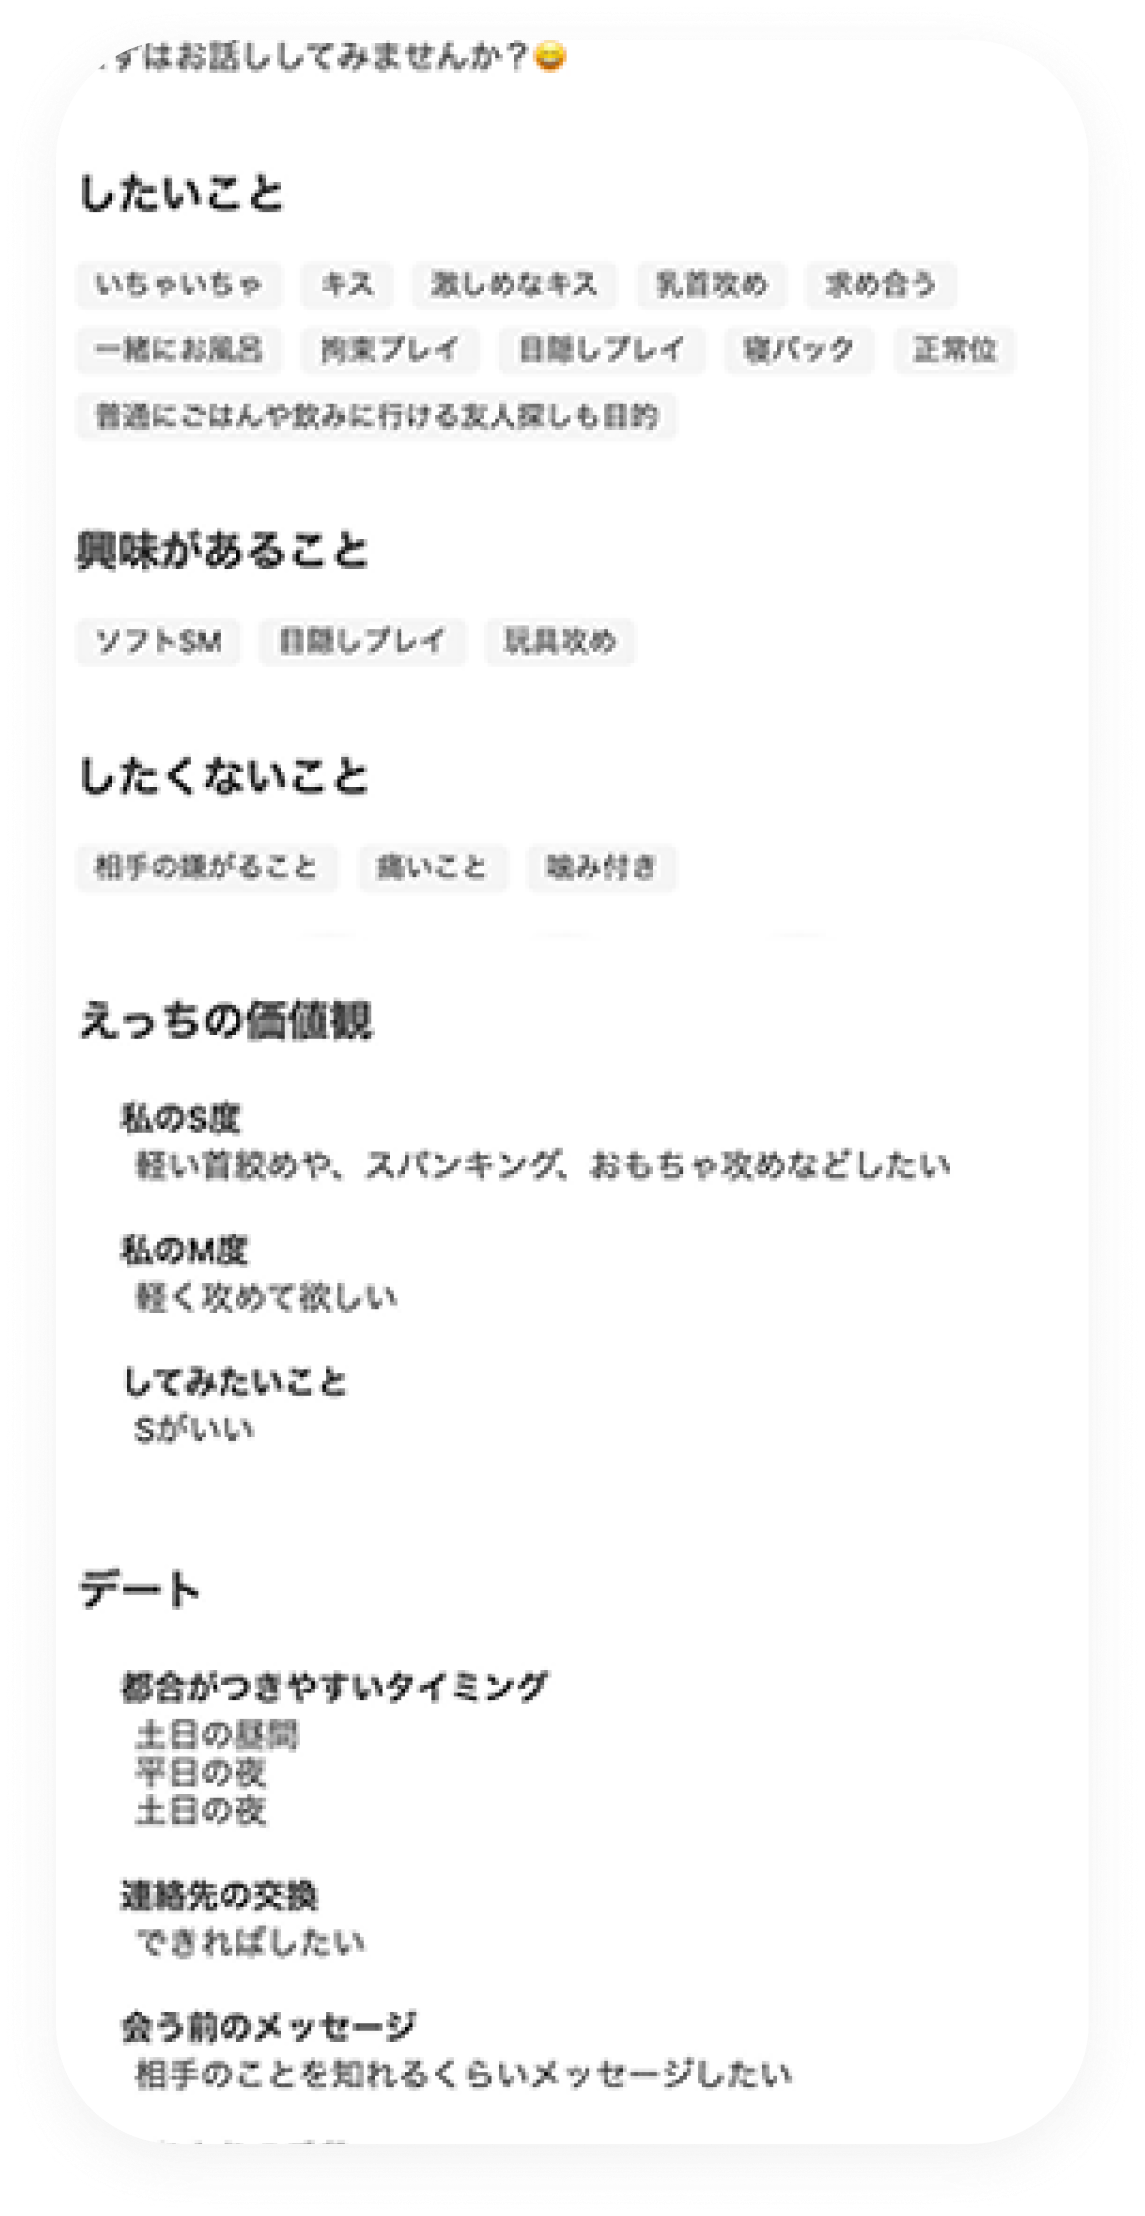 ずはお話ししてみませんか？😄
したいこと
いちゃいちゃ キス 激しめなキス 乳首攻め 求め合う
一緒にお風呂 拘束プレイ 目隠しプレイ 寝バック 正常位
普通にごはんや飲みに行ける友人探しも目的
興味があること
ソフトSM 目隠しプレイ 玩具攻め
したくないこと
相手の嫌がること 痛いこと 噛み付き
えっちの価値観
私のS度
軽い首絞めや、スパンキング、おもちゃ攻めなどしたい
私のM度
軽く攻めて欲しい
してみたいこと
Sがいい
デート
都合がつきやすいタイミング
土日の昼間
平日の夜
土日の夜
連絡先の交換
できればしたい
会う前のメッセージ
相手のことを知れるくらいメッセージしたい